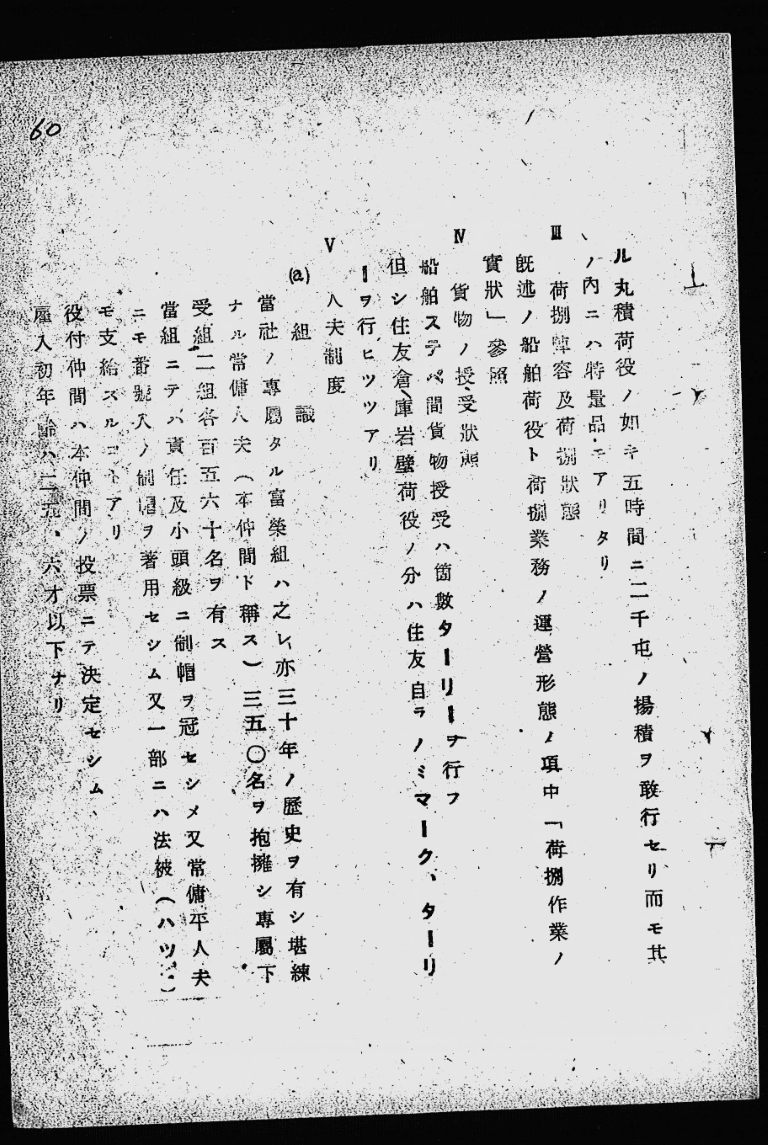 60
ル丸積荷役ノ如キ五時間ニ二千屯ノ揚積ヲ敢行セリ而モ其
ノ內ニハ特量品モアリタリ
Ⅲ 荷捌陣容及荷捌狀態
旣述ノ船舶荷役ト荷捌業務ノ運營形態ノ項中「荷捌作業ノ
實狀」參照
Ⅳ 貨物ノ授受狀態
船舶ステベ間貨物授受ハ箇數ターリーヲ行フ
但シ住友倉庫岩壁荷役ノ分ハ住友自ラノミマーク、ターリ
ーヲ行ヒツツアリ
Ⅴ 人夫制度
(a) 組識
當社ノ專屬タル富榮組ハ之レ亦三十年ノ歷史ヲ有シ堪練
ナル常傭人夫(本仲間ト稱ス)三五〇名ヲ抱擁シ專屬下
受組二組各百五六十名ヲ有ス
當組ニテハ責任及小頭級ニ制帽ヲ冠セシメ又常傭平人夫
ニモ番號入ノ制帽ヲ著用セシム又一部ニハ法被(ハツ
モ支給スルコトアリ
役付仲間ハ本仲間ノ投票ニテ決定セシム、
雇入初年齡ハ二五、六才以下ナリ